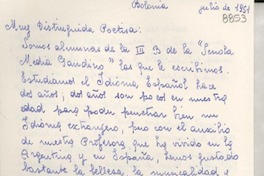 Bolonia julio de 1951
8853
Muy Distinguida Poetisa:
Somos alumnas de la III B de la "Scuola
Media Gandino" las que le escribimos.
Estudiamos el Idioma Español hace
dos años; dos años son pocos en nuestra
edad para poder penetrar bien un
Idioma extranjero, pero con el auxilio
de nuestra Profesora que ha vivido en la
Argentina y en España, hemos gustado
bastante la belleza, la musicalidad y